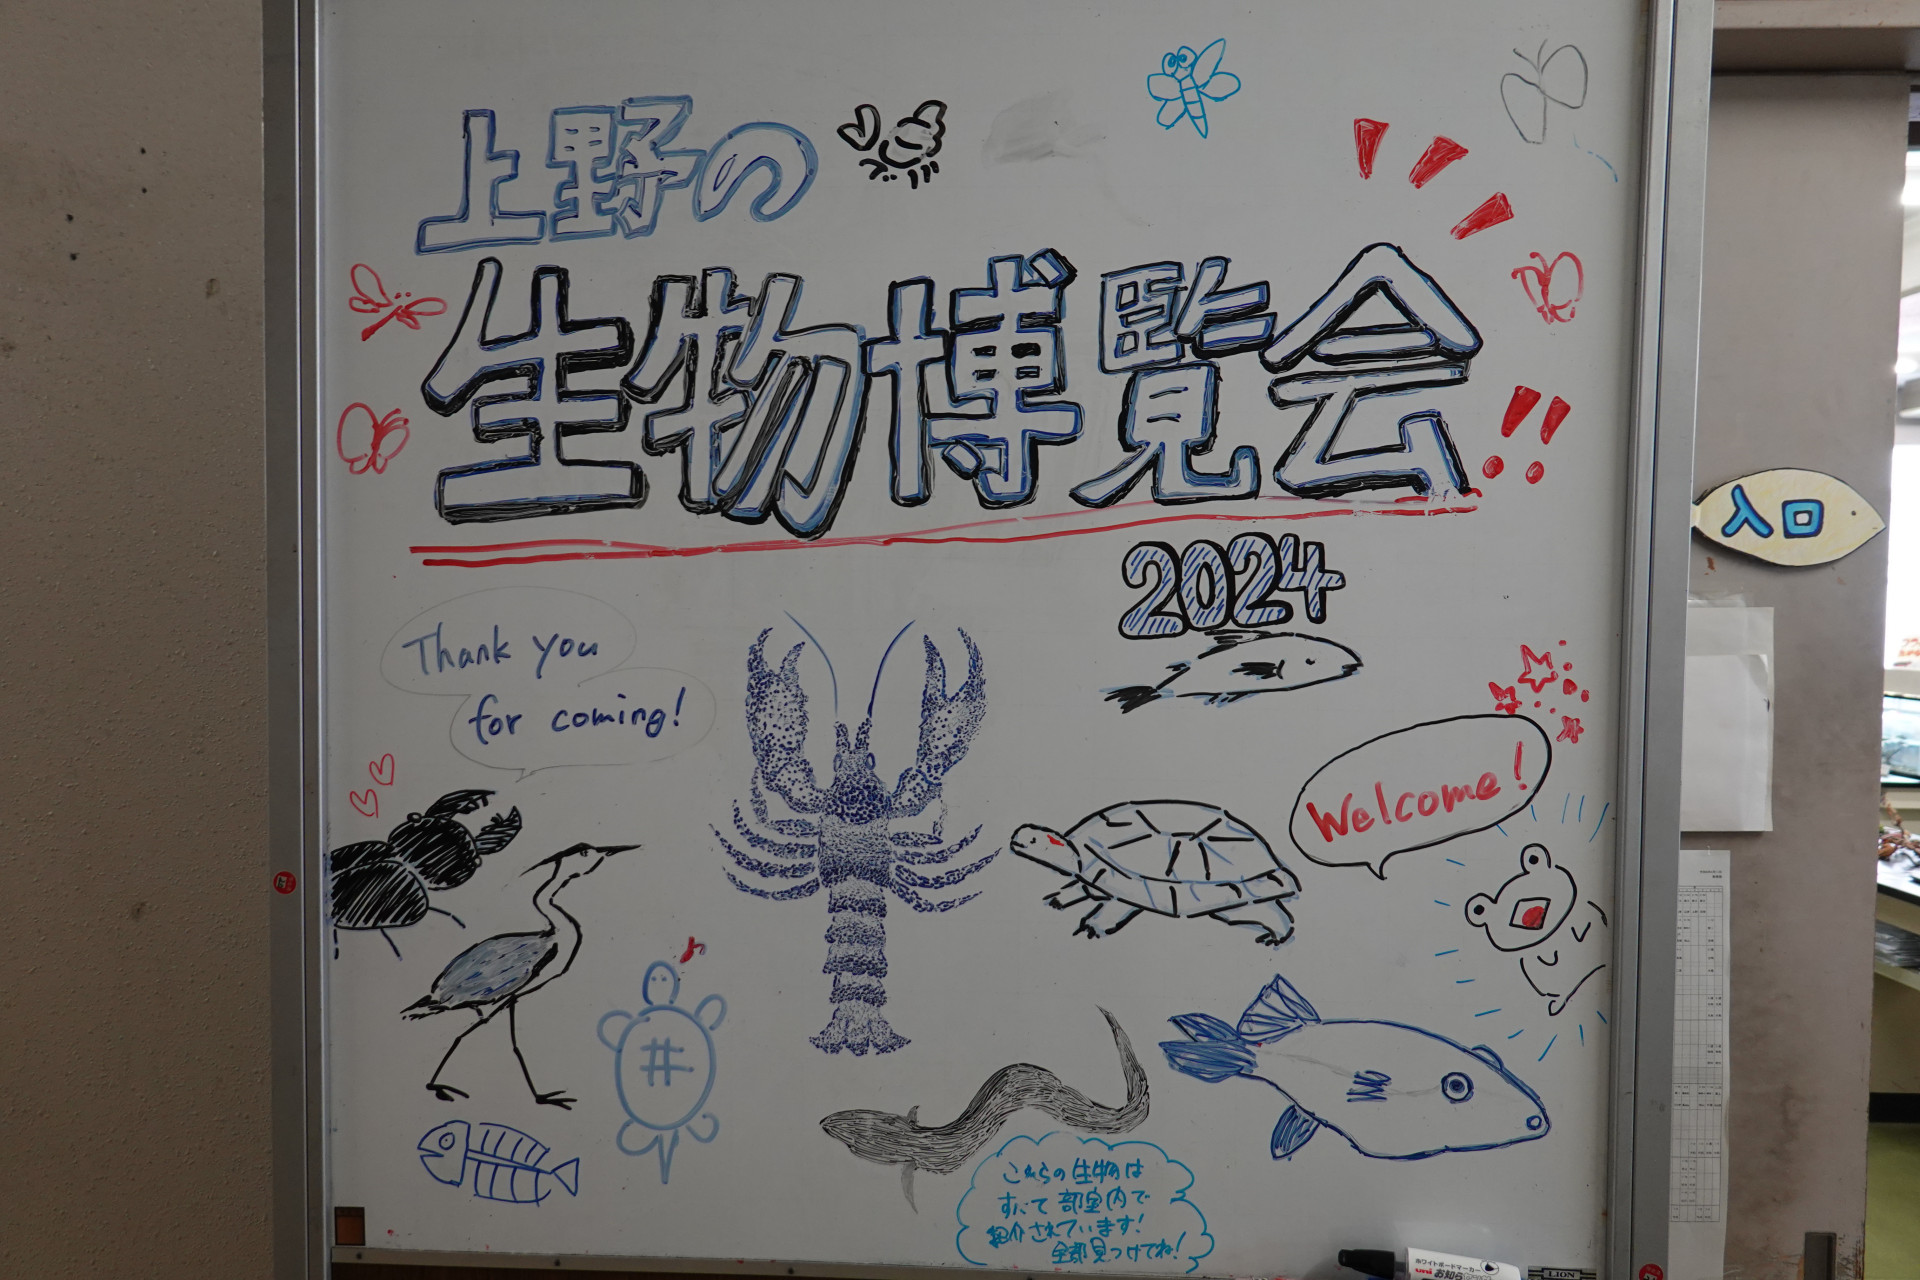 上野の
生物博覧会!!
2024
入口
Thank you
for coming!
Welcome!
これらの生物は
すべて部室内で
紹介されています!
全部見つけてね!
ホワイトボードマーカー
uni お知ら
LION